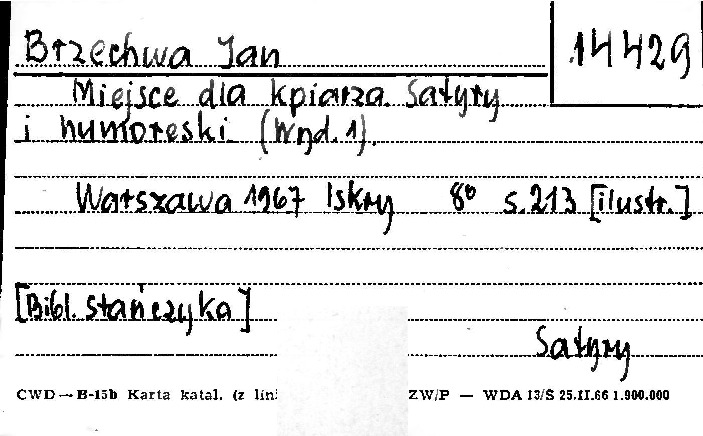 Brzechwa Jan
14429
Miejsce dla kpiarza. Satyry
i humoreski (Wyd. 1).
Warszawa 1967 Iskry 8° s. 213 [ilustr.]
[Bibl. Stańczyka]
Satyry
CWD — B-15b Karta katal. (z lini ZW/P — WDA 13/S 25.II.66 1.900.000